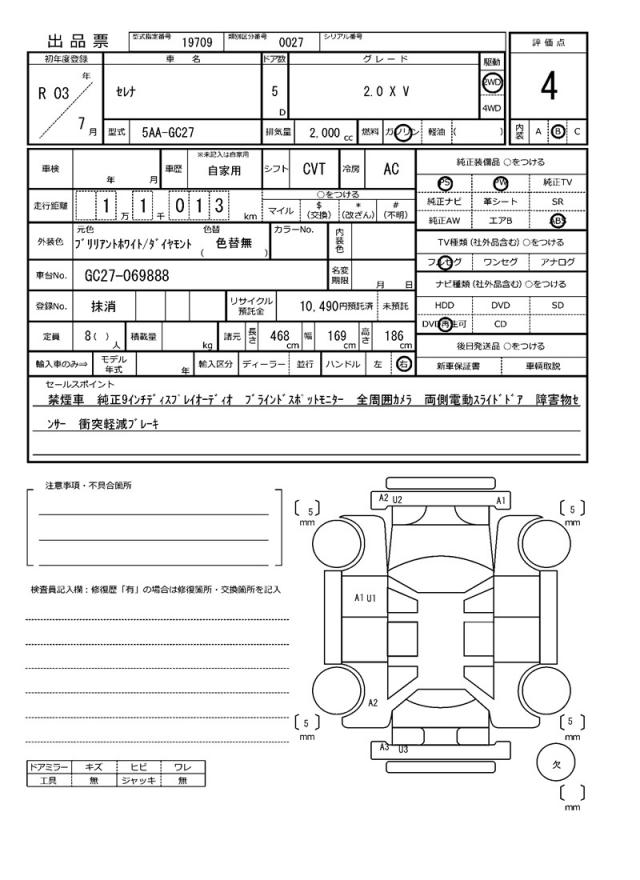 出品票 型式指定番号 19709 類別区分番号 0027 シリアル番号
評価点
4
内装 A B C
初年度登録 車名 ドア数 グレード 駆動
R 03 年 7 月 セレナ 5 D 2.0 X V 2WD 4WD
型式 5AA-GC27 排気量 2,000 cc 燃料 ガソリン 軽油 ( )
車検 年 月 車歴 ※未記入は自家用 自家用 シフト CVT 冷房 AC
走行距離 1 万 1 千 0 1 3 km
○をつける
マイル $ (交換) * (改ざん) # (不明)
外装色 元色 ブリリアントホワイト/ダイヤモンド 色替 ( 色替無 ) カラーNo. 内装色
車台No. GC27-069888 名変期限 月 日
登録No. 抹消 リサイクル預託金 10,490円預託済 未預託
定員 8 ( ) 人 積載量 kg 諸元 長さ 468 cm 幅 169 cm 高さ 186 cm
輸入車のみ⇒ モデル年式 年 輸入区分 ディーラー 並行 ハンドル 左 右
純正装備品 ○をつける
PS PW 純正TV
純正ナビ 革シート SR
純正AW エアB ABS
TV種類 (社外品含む) ○をつける
フルセグ ワンセグ アナログ
ナビ種類 (社外品含む) ○をつける
HDD DVD SD
DVD再生可 CD
後日発送品 ○をつける
新車保証書 車輌取説
セールスポイント
禁煙車 純正9インチディスプレイオーディオ ブラインドスポットモニター 全周囲カメラ 両側電動スライドドア 障害物セ
ンサー 衝突軽減ブレーキ
注意事項・不具合箇所
検査員記入欄：修復歴「有」の場合は修復箇所・交換箇所を記入
ドアミラー キズ ヒビ ワレ
工具 無 ジャッキ 無
A2 U2 A1
[ 5 ] mm [ 5 ] mm
A1 U1
A2
[ 5 ] mm [ 5 ] mm
A3 U3
欠
[ ] mm